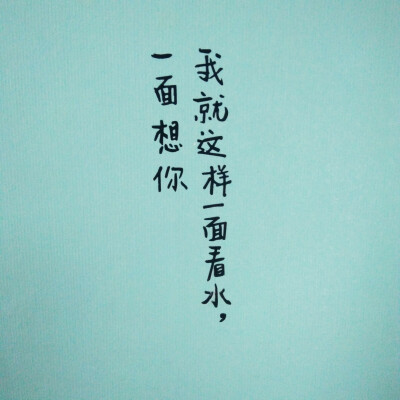 我就这样一面看水，
一面想你